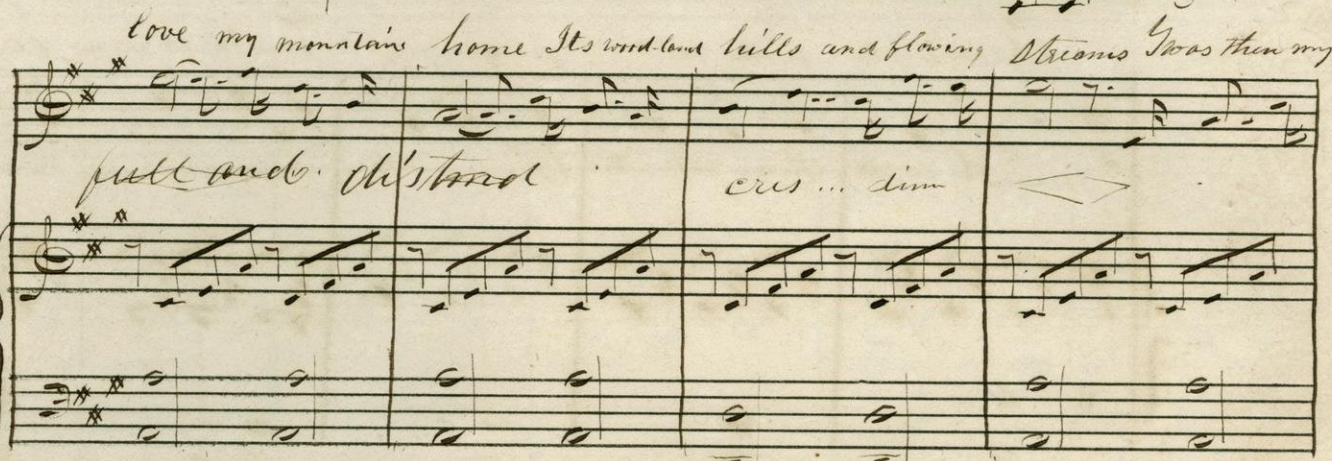 love my mountain home Its wood-land hills and flowing streams Twas then my
full and distind
cres... dim